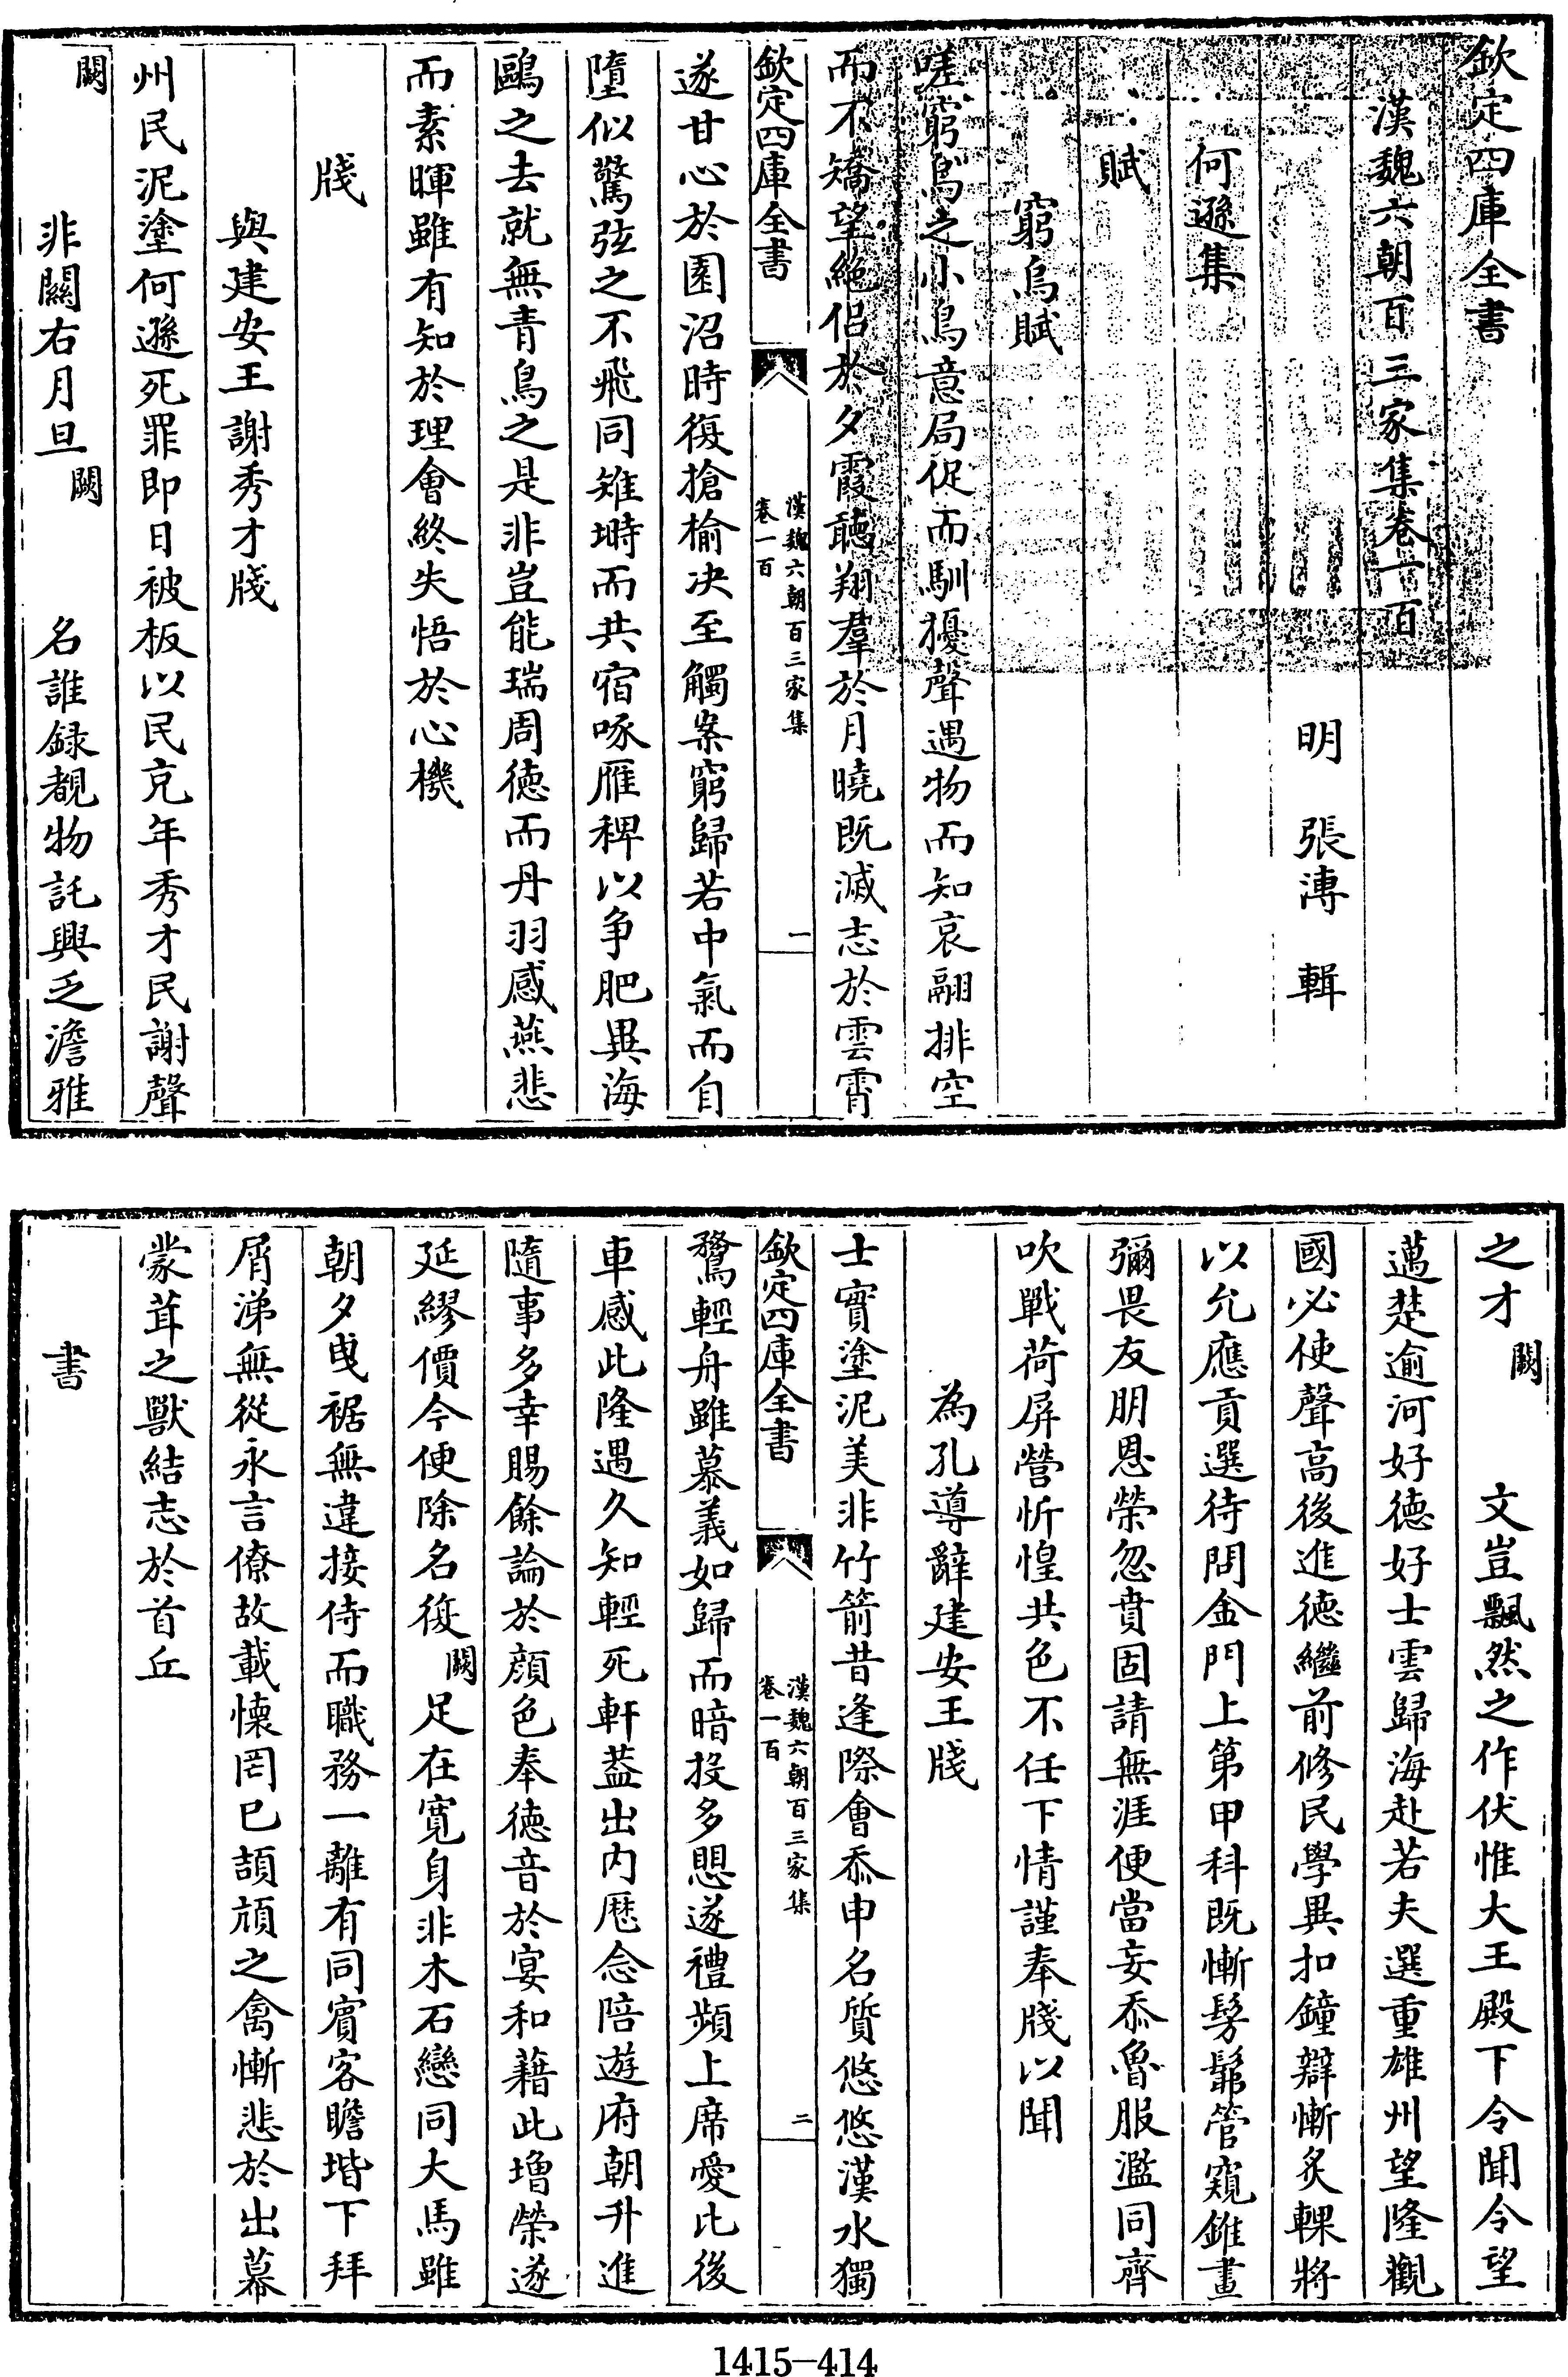 欽定四庫全書
漢魏六朝百三家集卷一百
明　張溥　輯
何遜集
賦
窮烏賦
嗟窮鳥之小鳥意局促而馴擾聲遇物而知哀翮排空
而不矯望絶侶於夕霞聽翔羣於月曉既滅志於雲霄
欽定四庫全書
漢魏六朝百三家集
卷一百
一
遂甘心於園沼時復搶榆决至觸案窮歸若中氣而自
墮似驚弦之不飛同雉塒而共宿啄雁稗以争肥異海
鷗之去就無青鳥之是非豈能瑞周徳而丹羽感燕悲
而素暉雖有知於理會終失悟於心機
牋
與建安王謝秀才牋
州民泥塗何遜死罪即日被板以民充年秀才民謝聲
闕　非關右月旦闕　名誰録覩物託興乏澹雅
之才闕　文豈飄然之作伏惟大王殿下令聞令望
邁楚逾河好徳好士雲歸海赴若夫選重雄州望隆觀
國必使聲高後進徳繼前修民學異扣鐘辯慚炙輠將
以允應貢選待問金門上第甲科既慚髣髴管窺錐畫
彌畏友朋恩榮忽賁固請無涯便當妄忝魯服濫同齊
吹戰荷屏營忻惶共色不任下情謹奉牋以聞
為孔導辭建安王牋
士實塗泥美非竹箭昔逢際會忝申名質悠悠漢水獨
欽定四庫全書
漢魏六朝百三家集
卷一百
二
鶩輕舟雖慕義如歸而暗投多愳遂禮頻上席愛比後
車感此隆遇久知輕死軒葢出内厯念陪遊府朝升進
隨事多幸賜餘論於顔色奉徳音於宴和藉此増榮遂
延繆價今便除名復闕足在寛身非木石戀同犬馬雖
朝夕曵裾無違接侍而職務一離有同賓客瞻堦下拜
屑涕無從永言僚故載懐罔已頡頏之禽慚悲於出幕
蒙茸之獸結志於首丘
書
1415-414